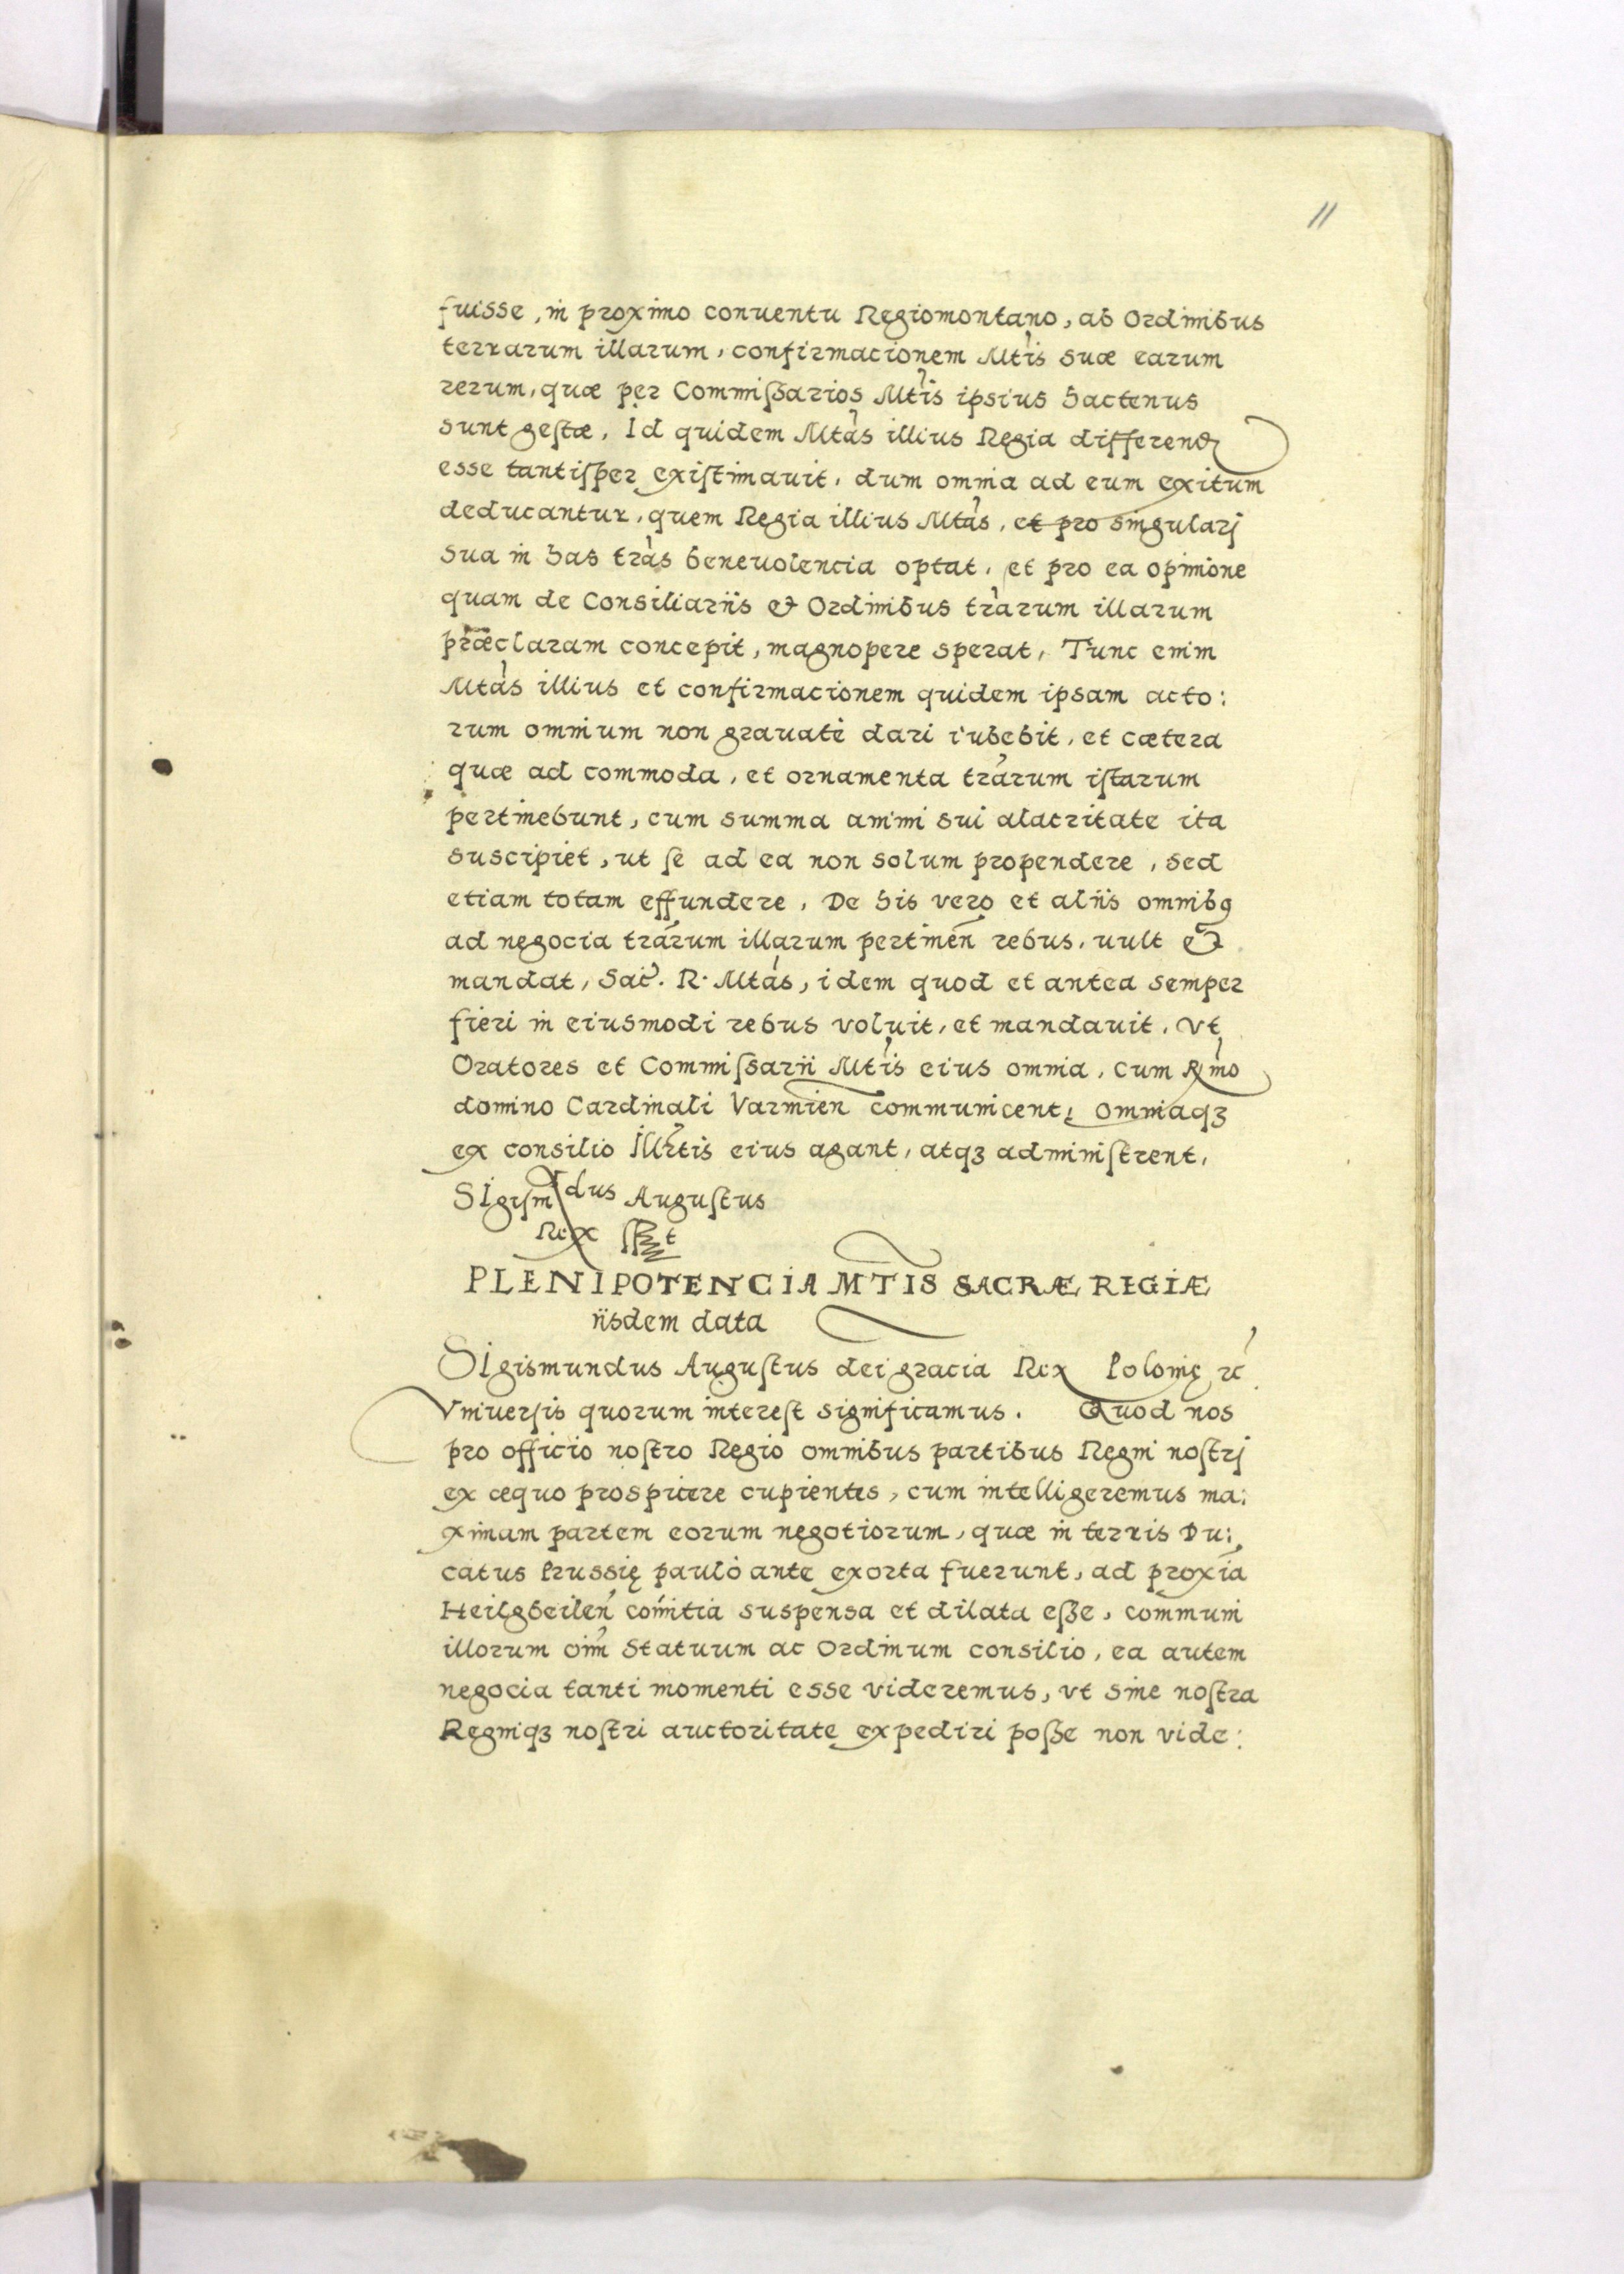 11
fuisse, in proximo conuentu Regiomontano, ab Ordinibus
terrarum illarum, confirmacionem Mtis suæ earum
rerum, quæ per Commiſsarios Mtis ipsius hactenus
sunt geſtæ, Id quidem Mtas illius Regia differend
esse tantiſper exiſtimauit, dum omnia ad eum exitum
deducantur, quem Regia illius Mtas, et pro singularj
sua in has tras beneuolencia optat, et pro ea opinione
quam de Consiliariis & Ordinibus trarum illarum
præclaram concepit, magnopere sperat, Tunc enim
Mtas illius et confirmacionem quidem ipsam acto:
rum omnium non grauatè dari iubebit, et cætera
quæ ad commoda, et ornamenta trarum iſtarum
pertinebunt, cum summa animi sui alacritate ita
suscipiet, ut ſe ad ea non solum propendere, sed
etiam totam effundere, De his vero et aliis omnibꝯ
ad negocia trarum illarum pertinen rebus, uult &
mandat, Sac. R. Mtas, idem quod et antea semper
fieri in eiusmodi rebus voluit, et mandauit, Vt
Oratores et Commiſsarii Mtis eius omnia, cum Rmo
domino Cardinali Varmien communicent, omniaqꝫ
ex consilio Illrtis eius agant, atqꝫ adminiſtrent,
SIgiſmdus Auguſtus
Rex ſſt
PLENIPOTENCIA MTIS SACRÆ REGIÆ
iisdem data
SIgismundus Auguſtus dei gracia Rex Polonię ꝛc
Vniuerſis quorum intereſt significamus. Quod nos
pro officio noſtro Regio omnibus partibus Regni noſtrj
ex æquo prospicere cupientes, cum intelligeremus ma:
ximam partem eorum negotiorum, quæ in terris Du:
catus Prussię paulò ante exorta fuerunt, ad proxia
Heilgbeilen comitia suspensa et dilata eſse, communi
illorum oim Statuum ac Ordinum consilio, ea autem
negocia tanti momenti esse videremus, vt sine noſtra
Regniqꝫ noſtri auctoritate expediri poſse non vide: